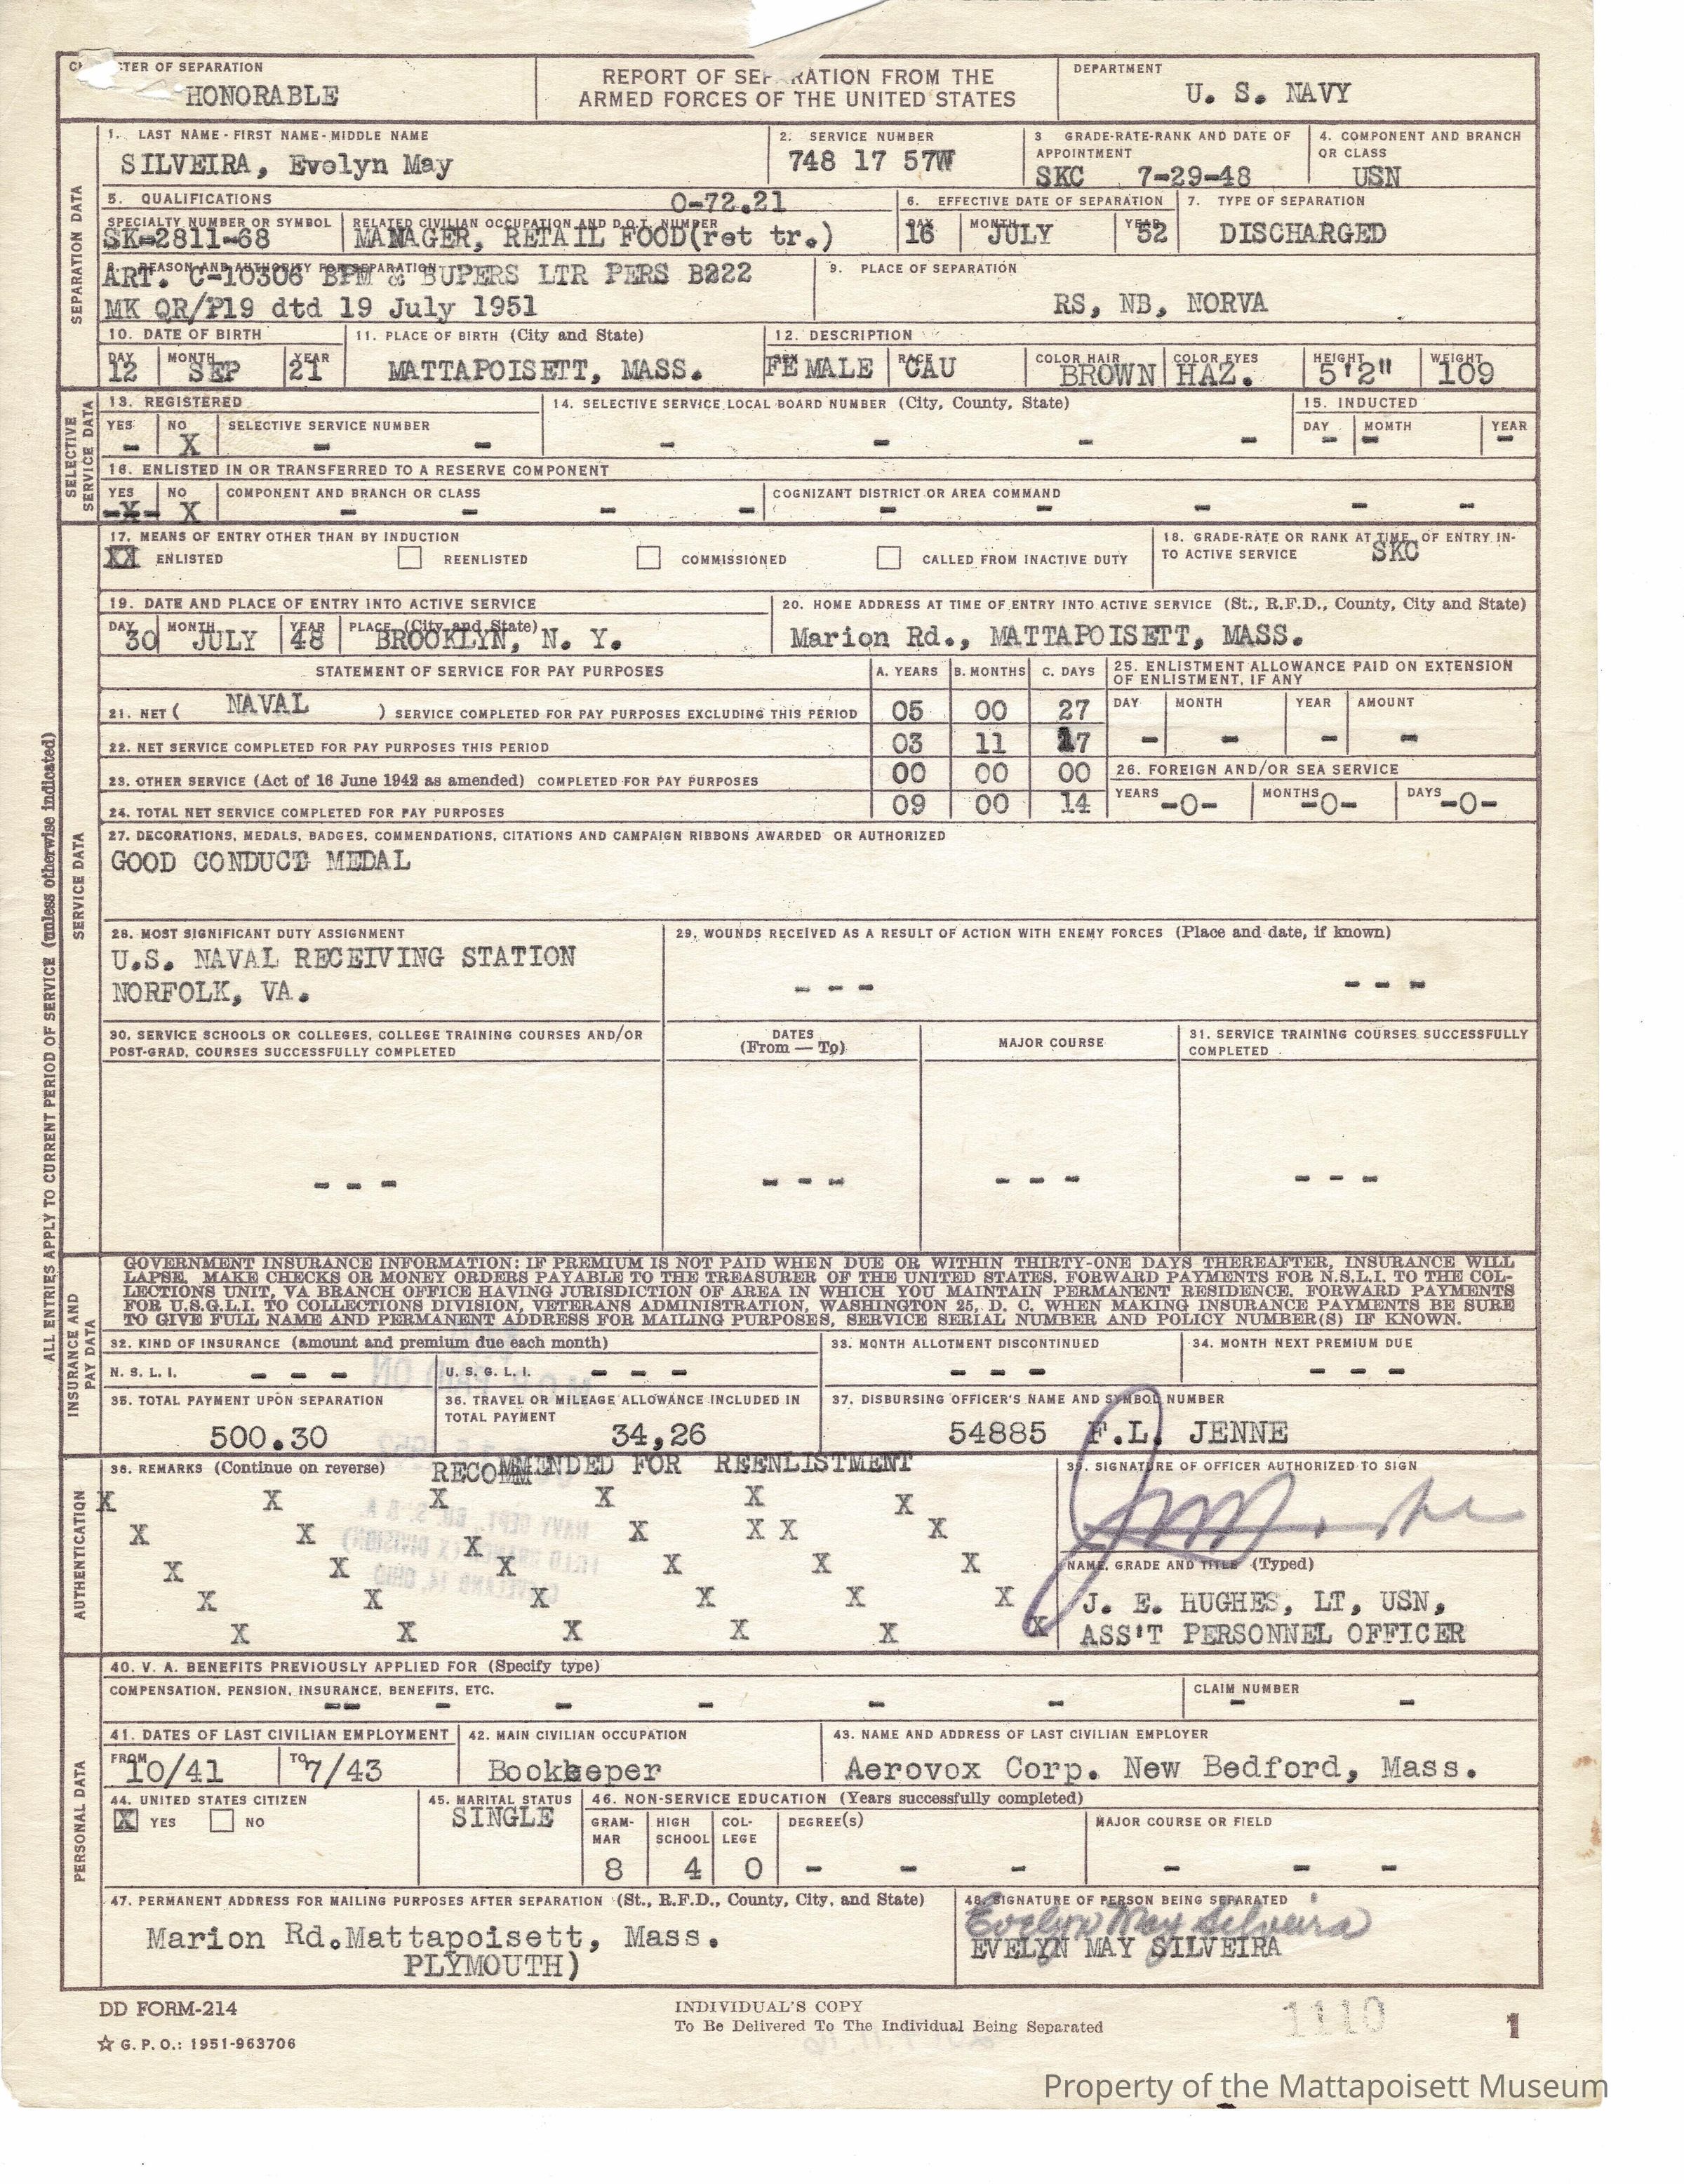 CH TER OF SEPARATION
HONORABLE
REPORT OF SEPARATION FROM THE
ARMED FORCES OF THE UNITED STATES
DEPARTMENT
U. S. NAVY
SEPARATION DATA
1. LAST NAME - FIRST NAME - MIDDLE NAME
SILVEIRA, Evelyn May
2. SERVICE NUMBER
748 17 57W
3 GRADE-RATE-RANK AND DATE OF
APPOINTMENT
SKC 7-29-48
4. COMPONENT AND BRANCH
OR CLASS
USN
5. QUALIFICATIONS
0-72.21
SPECIALTY NUMBER OR SYMBOL
SK-2811-68
RELATED CIVILIAN OCCUPATION AND D.O.T. NUMBER
MANAGER, RETAIL FOOD(ret tr.)
6. EFFECTIVE DATE OF SEPARATION
DAY MONTH YEAR
16 JULY 52
7. TYPE OF SEPARATION
DISCHARGED
REASON AND AUTHORITY FOR SEPARATION
ART. C-10306 BPM & BUPERS LTR PERS B222
MK QR/P19 dtd 19 July 1951
9. PLACE OF SEPARATION
RS, NB, NORVA
10. DATE OF BIRTH
DAY MONTH YEAR
12 SEP 21
11. PLACE OF BIRTH (City and State)
MATTAPOISETT, MASS.
12. DESCRIPTION
SEX RACE COLOR HAIR COLOR EYES HEIGHT WEIGHT
FEMALE CAU BROWN HAZ. 5'2" 109
SELECTIVE
SERVICE DATA
13. REGISTERED
YES NO SELECTIVE SERVICE NUMBER
- X - -
14. SELECTIVE SERVICE LOCAL BOARD NUMBER (City, County, State)
- - - -
15. INDUCTED
DAY MOMTH YEAR
- - -
16. ENLISTED IN OR TRANSFERRED TO A RESERVE COMPONENT
YES NO COMPONENT AND BRANCH OR CLASS
-X- X - - - -
COGNIZANT DISTRICT OR AREA COMMAND
- - - - -
ALL ENTRIES APPLY TO CURRENT PERIOD OF SERVICE (unless otherwise indicated)
SERVICE DATA
17. MEANS OF ENTRY OTHER THAN BY INDUCTION
XX ENLISTED REENLISTED COMMISSIONED CALLED FROM INACTIVE DUTY
18. GRADE-RATE OR RANK AT TIME OF ENTRY IN-
TO ACTIVE SERVICE SKC
19. DATE AND PLACE OF ENTRY INTO ACTIVE SERVICE
DAY MONTH YEAR PLACE (City and State)
30 JULY 48 BROOKLYN, N. Y.
20. HOME ADDRESS AT TIME OF ENTRY INTO ACTIVE SERVICE (St., R.F.D., County, City and State)
Marion Rd., MATTAPOISETT, MASS.
STATEMENT OF SERVICE FOR PAY PURPOSES A. YEARS B. MONTHS C. DAYS
21. NET ( NAVAL ) SERVICE COMPLETED FOR PAY PURPOSES EXCLUDING THIS PERIOD 05 00 27
22. NET SERVICE COMPLETED FOR PAY PURPOSES THIS PERIOD 03 11 17
23. OTHER SERVICE (Act of 16 June 1942 as amended) COMPLETED FOR PAY PURPOSES 00 00 00
24. TOTAL NET SERVICE COMPLETED FOR PAY PURPOSES 09 00 14
25. ENLISTMENT ALLOWANCE PAID ON EXTENSION
OF ENLISTMENT, IF ANY
DAY MONTH YEAR AMOUNT
- - - -
26. FOREIGN AND/OR SEA SERVICE
YEARS -0- MONTHS -0- DAYS -0-
27. DECORATIONS, MEDALS, BADGES, COMMENDATIONS, CITATIONS AND CAMPAIGN RIBBONS AWARDED OR AUTHORIZED
GOOD CONDUCT MEDAL
28. MOST SIGNIFICANT DUTY ASSIGNMENT
U.S. NAVAL RECEIVING STATION
NORFOLK, VA.
29. WOUNDS RECEIVED AS A RESULT OF ACTION WITH ENEMY FORCES (Place and date, if known)
- - - - - -
30. SERVICE SCHOOLS OR COLLEGES, COLLEGE TRAINING COURSES AND/OR
POST-GRAD. COURSES SUCCESSFULLY COMPLETED
DATES
(From — To)
MAJOR COURSE
31. SERVICE TRAINING COURSES SUCCESSFULLY
COMPLETED
- - - - - - - - - - - -
INSURANCE AND
PAY DATA
GOVERNMENT INSURANCE INFORMATION: IF PREMIUM IS NOT PAID WHEN DUE OR WITHIN THIRTY-ONE DAYS THEREAFTER, INSURANCE WILL
LAPSE. MAKE CHECKS OR MONEY ORDERS PAYABLE TO THE TREASURER OF THE UNITED STATES. FORWARD PAYMENTS FOR N.S.L.I. TO THE COL-
LECTIONS UNIT, VA BRANCH OFFICE HAVING JURISDICTION OF AREA IN WHICH YOU MAINTAIN PERMANENT RESIDENCE. FORWARD PAYMENTS
FOR U.S.G.L.I. TO COLLECTIONS DIVISION, VETERANS ADMINISTRATION, WASHINGTON 25, D. C. WHEN MAKING INSURANCE PAYMENTS BE SURE
TO GIVE FULL NAME AND PERMANENT ADDRESS FOR MAILING PURPOSES, SERVICE SERIAL NUMBER AND POLICY NUMBER(S) IF KNOWN.
32. KIND OF INSURANCE (amount and premium due each month)
N. S. L. I. - - - U. S. G. L. I. - - -
33. MONTH ALLOTMENT DISCONTINUED
- - -
34. MONTH NEXT PREMIUM DUE
- - -
35. TOTAL PAYMENT UPON SEPARATION
500.30
36. TRAVEL OR MILEAGE ALLOWANCE INCLUDED IN
TOTAL PAYMENT
34,26
37. DISBURSING OFFICER'S NAME AND SYMBOL NUMBER
54885 F.L. JENNE
AUTHENTICATION
38. REMARKS (Continue on reverse) RECOMMENDED FOR REENLISTMENT
X X X X X X
X X X X X X X
X X X X X X
X X X X X X
X X X X X X
39. SIGNATURE OF OFFICER AUTHORIZED TO SIGN
NAME, GRADE AND TITLE (Typed)
J. E. HUGHES, LT, USN,
ASS'T PERSONNEL OFFICER
PERSONAL DATA
40. V. A. BENEFITS PREVIOUSLY APPLIED FOR (Specify type)
COMPENSATION, PENSION, INSURANCE, BENEFITS, ETC.
-- - - - - -
CLAIM NUMBER
- -
41. DATES OF LAST CIVILIAN EMPLOYMENT
FROM 10/41 TO 7/43
42. MAIN CIVILIAN OCCUPATION
Bookkeeper
43. NAME AND ADDRESS OF LAST CIVILIAN EMPLOYER
Aerovox Corp. New Bedford, Mass.
44. UNITED STATES CITIZEN
X YES NO
45. MARITAL STATUS
SINGLE
46. NON-SERVICE EDUCATION (Years successfully completed)
GRAM-
MAR
8
HIGH
SCHOOL
4
COL-
LEGE
0
DEGREE(S)
- - -
MAJOR COURSE OR FIELD
- - -
47. PERMANENT ADDRESS FOR MAILING PURPOSES AFTER SEPARATION (St., R.F.D., County, City, and State)
Marion Rd.Mattapoisett, Mass.
PLYMOUTH)
48. SIGNATURE OF PERSON BEING SEPARATED
Evelyn May Silveira
EVELYN MAY SILVEIRA
DD FORM-214
☆ G. P. O.: 1951-963706
INDIVIDUAL'S COPY
To Be Delivered To The Individual Being Separated
1110
1
Property of the Mattapoisett Museum